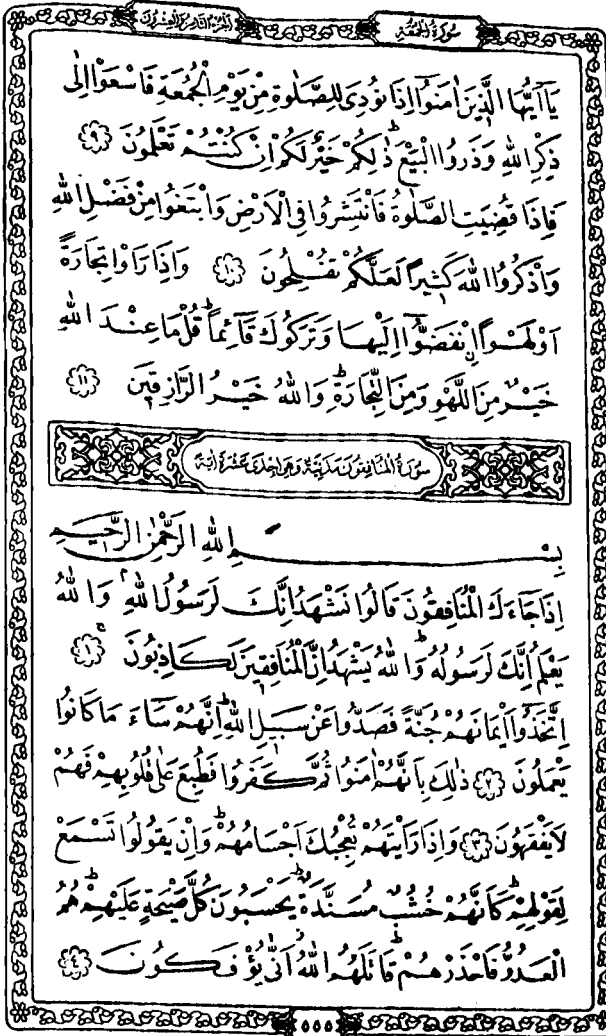 سورة الجمعة الجزء الثامن والعشرون
يَآ اَيُّهَا الَّذ۪ينَ اٰمَنُٓوا اِذَا نُودِيَ لِلصَّلٰوةِ مِنْ يَوْمِ الْجُمُعَةِ فَاسْعَوْا اِلٰى
ذِكْرِ اللّٰهِ وَذَرُوا الْبَيْعَۜ ذٰلِكُمْ خَيْرٌ لَكُمْ اِنْ كُنْتُمْ تَعْلَمُونَ ﴿٩﴾
فَاِذَا قُضِيَتِ الصَّلٰوةُ فَانْتَشِرُوا فِي الْاَرْضِ وَابْتَغُوا مِنْ فَضْلِ اللّٰهِ
وَاذْكُرُوا اللّٰهَ كَث۪يرًا لَعَلَّكُمْ تُفْلِحُونَ ﴿١٠﴾ وَاِذَا رَاَوْا تِجَارَةً
اَوْ لَهْوًاۨ انْفَضُّٓوا اِلَيْهَا وَتَرَكُوكَ قَٓائِمًاۜ قُلْ مَا عِنْدَ اللّٰهِ
خَيْرٌ مِنَ اللَّهْوِ وَمِنَ التِّجَارَةِۜ وَاللّٰهُ خَيْرُ الرَّازِق۪ينَ ﴿١١﴾
سورة المنافقون مدنية وهي احدى عشرة اية
بِسْمِ اللّٰهِ الرَّحْمٰنِ الرَّح۪يمِ
اِذَا جَٓاءَكَ الْمُنَافِقُونَ قَالُوا نَشْهَدُ اِنَّكَ لَرَسُولُ اللّٰهِۢ وَاللّٰهُ
يَعْلَمُ اِنَّكَ لَرَسُولُهُۜ وَاللّٰهُ يَشْهَدُ اِنَّ الْمُنَافِق۪ينَ لَكَاذِبُونَۚ ﴿١﴾
اِتَّخَذُٓوا اَيْمَانَهُمْ جُنَّةً فَصَدُّوا عَنْ سَب۪يلِ اللّٰهِۜ اِنَّهُمْ سَٓاءَ مَا كَانُوا
يَعْمَلُونَ ﴿٢﴾ ذٰلِكَ بِاَنَّهُمْ اٰمَنُوا ثُمَّ كَفَرُوا فَطُبِعَ عَلٰى قُلُوبِهِمْ فَهُمْ
لَا يَفْقَهُونَ ﴿٣﴾ وَاِذَا رَاَيْتَهُمْ تُعْجِبُكَ اَجْسَامُهُمْۜ وَاِنْ يَقُولُوا تَسْمَعْ
لِقَوْلِهِمْۜ كَاَنَّهُمْ خُشُبٌ مُسَنَّدَةٌۜ يَحْسَبُونَ كُلَّ صَيْحَةٍ عَلَيْهِمْۜ هُمُ
الْعَدُوُّ فَاحْذَرْهُمْۜ قَاتَلَهُمُ اللّٰهُۘ اَنّٰى يُؤْفَكُونَ ﴿٤﴾
٥٥٥